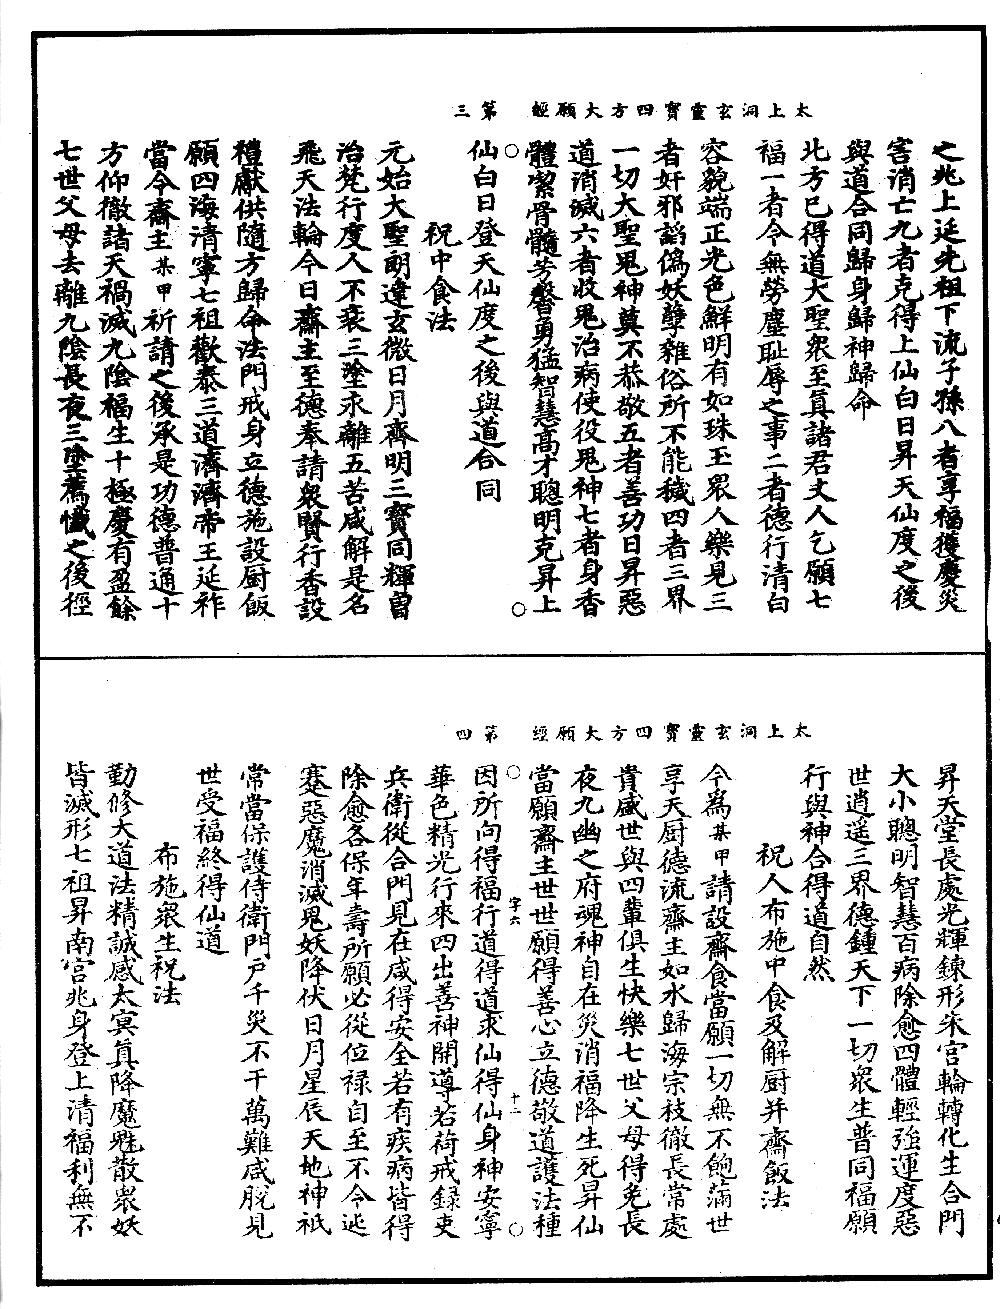 之兆上延先祖下流子孫八者享福獲慶災
害消亡九者克得上仙白日昇天仙度之後
與道合同歸身歸神歸命
北方已得道大聖衆至真諸君丈人乞願七
福一者令無勞塵耻辱之事二者德行清白
容貌端正光色鮮明有如珠玉衆人樂見三
者奸邪謟僞妖孽雜俗所不能穢四者三界
一切大聖鬼神莫不恭敬五者善功日昇惡
道消滅六者收鬼治病使役鬼神七者身香
體潔骨髓芳馨勇猛智慧髙才聰明克昇上
太上洞玄靈寶四方大願經　第三
仙白日登天仙度之後與道合同
祝中食法
元始大聖朗達玄微日月齊明三寶同輝曽
治梵行度人不衰三塗永離五苦咸解是名
飛天法輪今日齋主至德奉請衆賢行香設
禮獻供隨方歸命法門戒身立德施設厨飯
願四海清寧七祖歡泰三道濟濟帝王延祚
當今齋主某甲祈請之後承是功德普通十
方仰徹諸天禍滅九陰福生十極慶有盈餘
七世父母去離九陰長夜三塗薦懺之後徑
昇天堂長處光輝鍊形朱宫輪轉化生合門
大小聰明智慧百病除愈四體輕強運度惡
世逍遥三界德鍾天下一切衆生普同福願
行與神合得道自然
祝人布施中食及解厨并齋飯法
今爲某甲請設齋食當願一切無不飽滿世
享天厨德流齋主如水歸海宗枝徹長常處
貴盛世與四輩俱生快樂七世父母得免長
夜九幽之府魂神自在災消福降生死昇仙
當願齋主世世願得善心立德敬道護法種
太上洞玄靈寶四方大願經　第四
字六　十二
因所向得福行道得道求仙得仙身神安寧
華色精光行來四出善神開導若荷戒録吏
兵衛從合門見在咸得安全若有疾病皆得
除愈各保年壽所願必從位禄自至不令迍
蹇惡魔消滅鬼妖降伏日月星辰天地神祇
常當保護侍衛門户千災不干萬難咸脱見
世受福終得仙道
布施衆生祝法
勤修大道法精誠感太㝠真降魔魅散衆妖
皆滅形七祖昇南宫兆身登上清福利無不